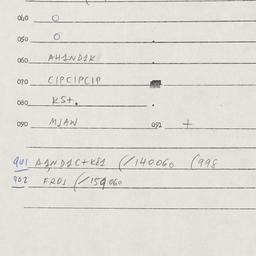 040 0
050 0
060 AH1ND1K
070 CIPCIPCIP
080 KSt.
090 MJAW 092 +
901 A1ND1C+K81 (/140060 (998
902 FR01 (/159060